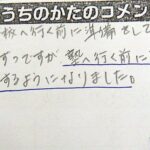 うちのかたのコメン
校へ行く前に準備をして
すってですが塾へ行く前に
するようになりました。